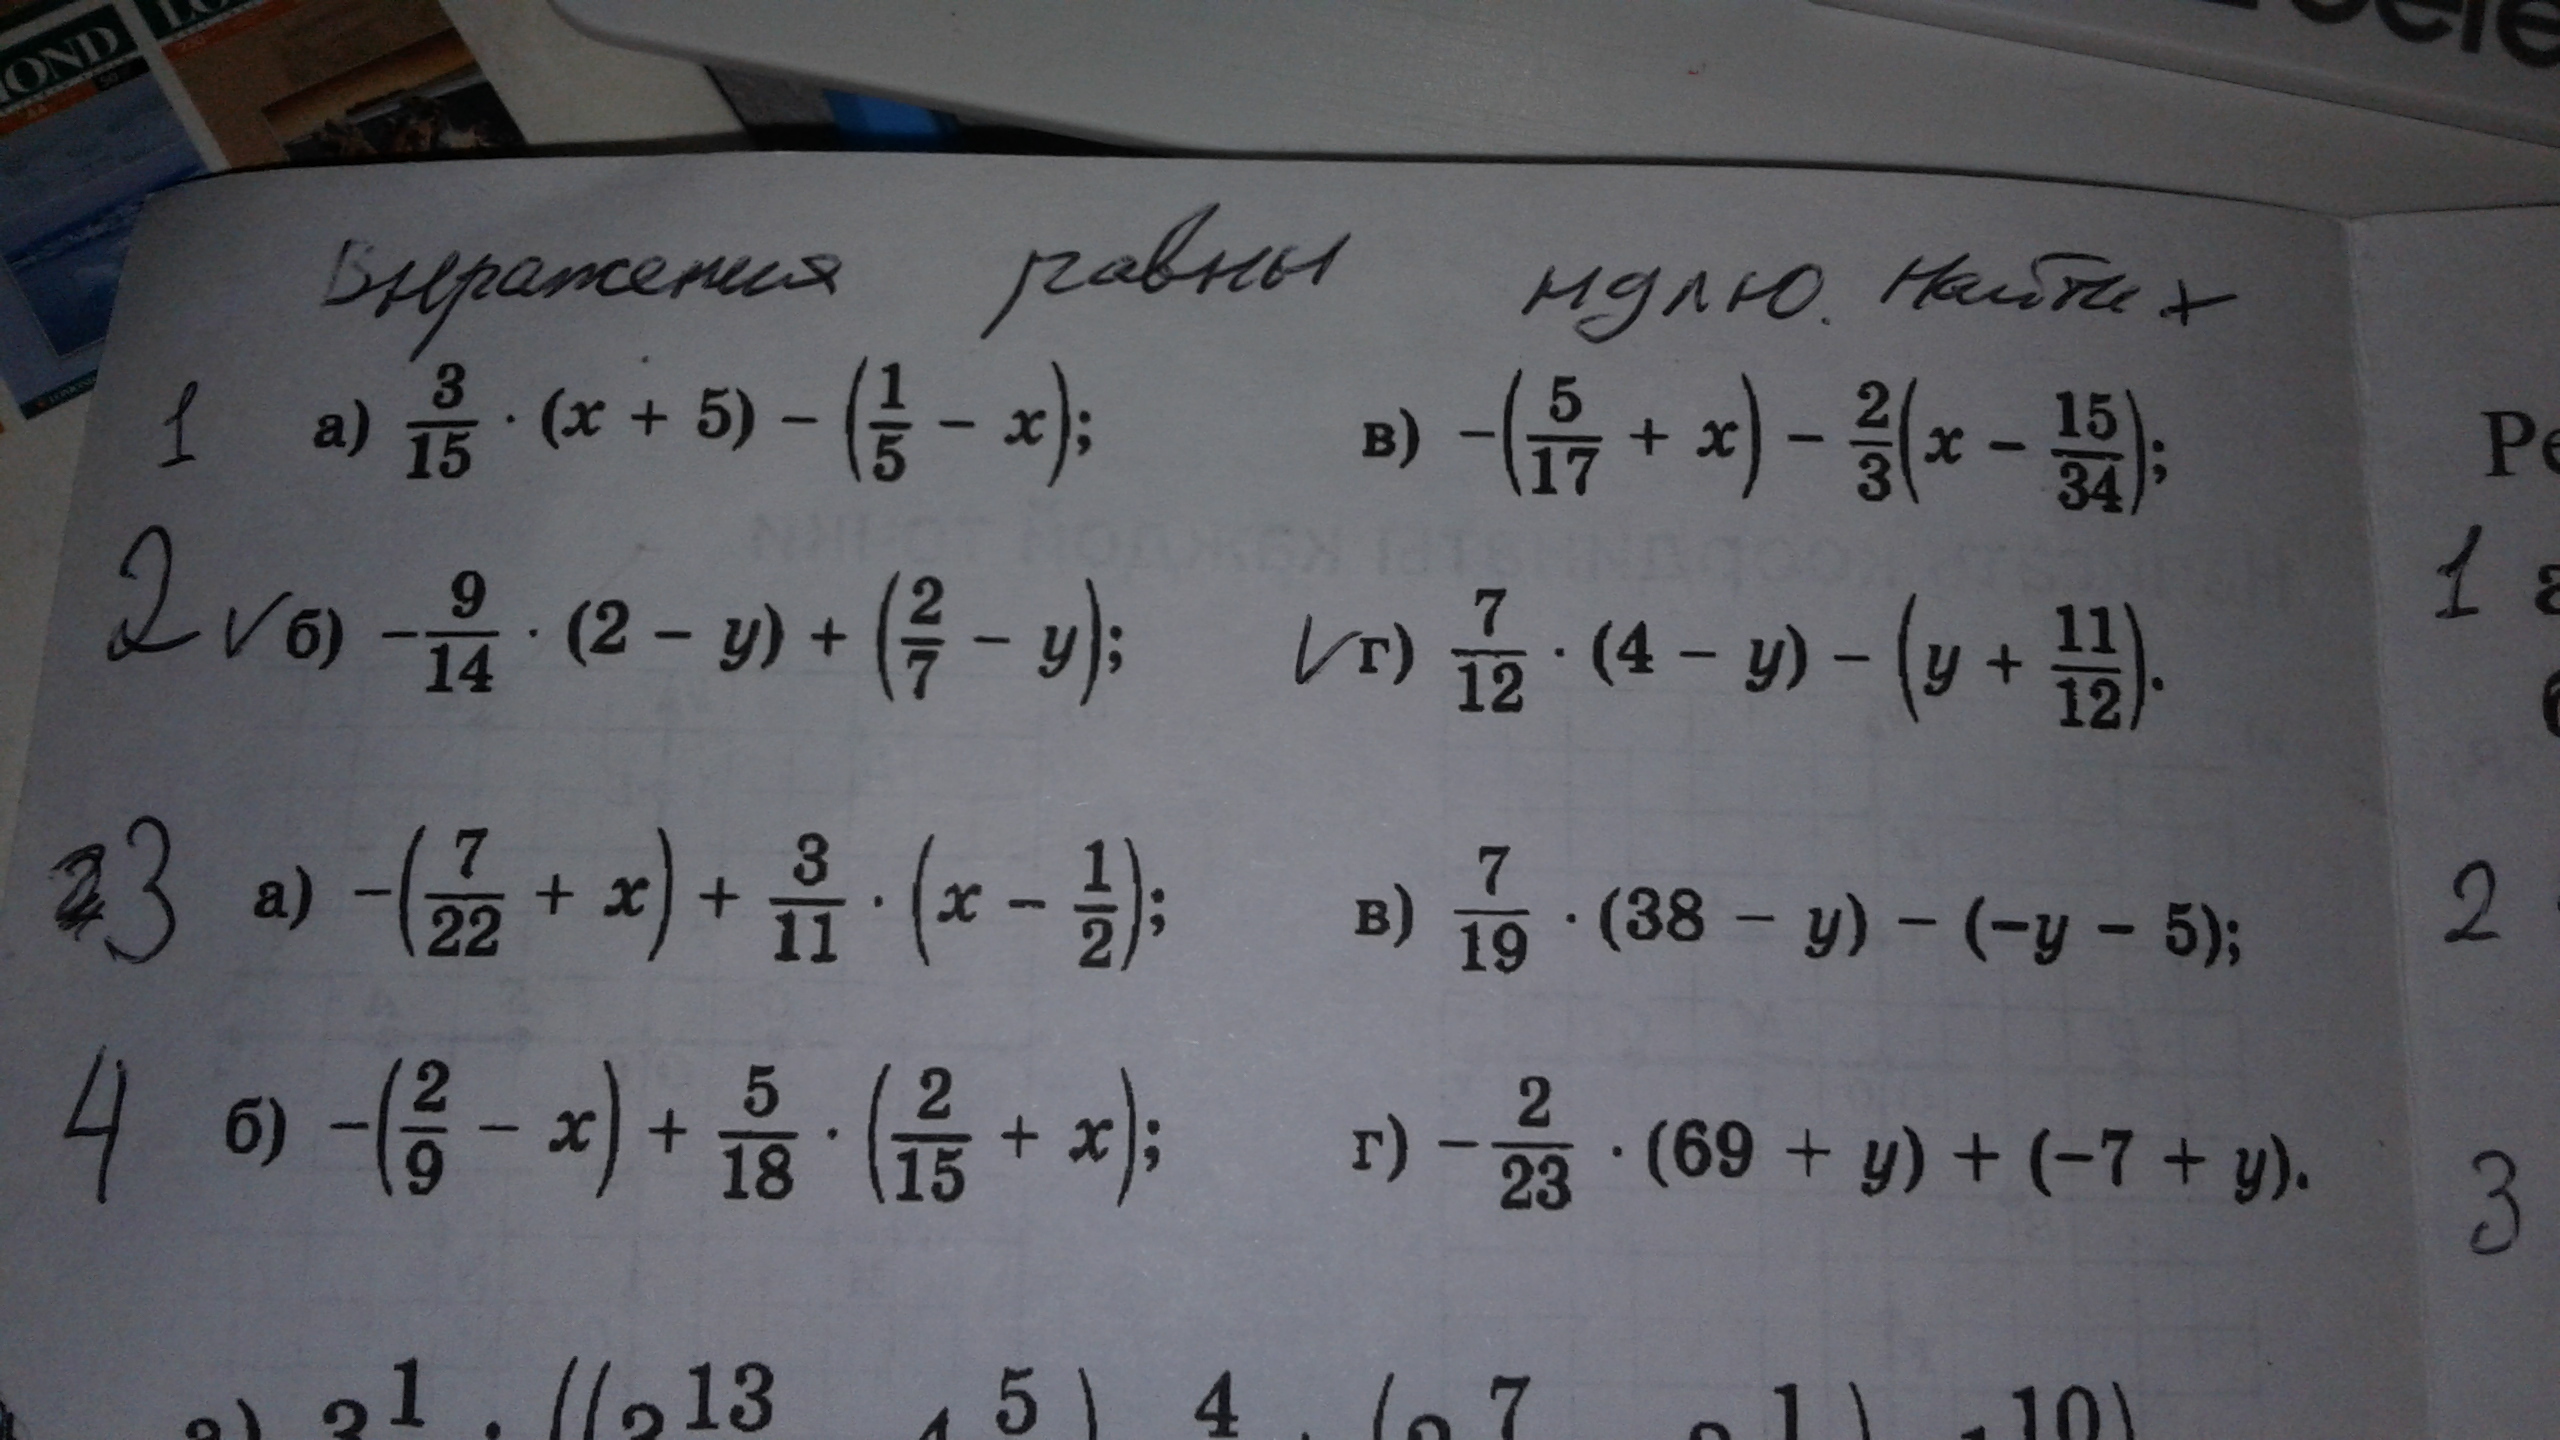 Выражения равны нулю. Найти x
1 а) 3/15 · (x + 5) − (1/5 − x); в) −(5/17 + x) − 2/3(x − 15/34);
2 √ б) −9/14 · (2 − y) + (2/7 − y); √ г) 7/12 · (4 − y) − (y + 11/12).
3 а) −(7/22 + x) + 3/11 · (x − 1/2); в) 7/19 · (38 − y) − (−y − 5);
4 б) −(2/9 − x) + 5/18 · (2/15 + x); г) −2/23 · (69 + y) + (−7 + y).
Ре
1
2
3